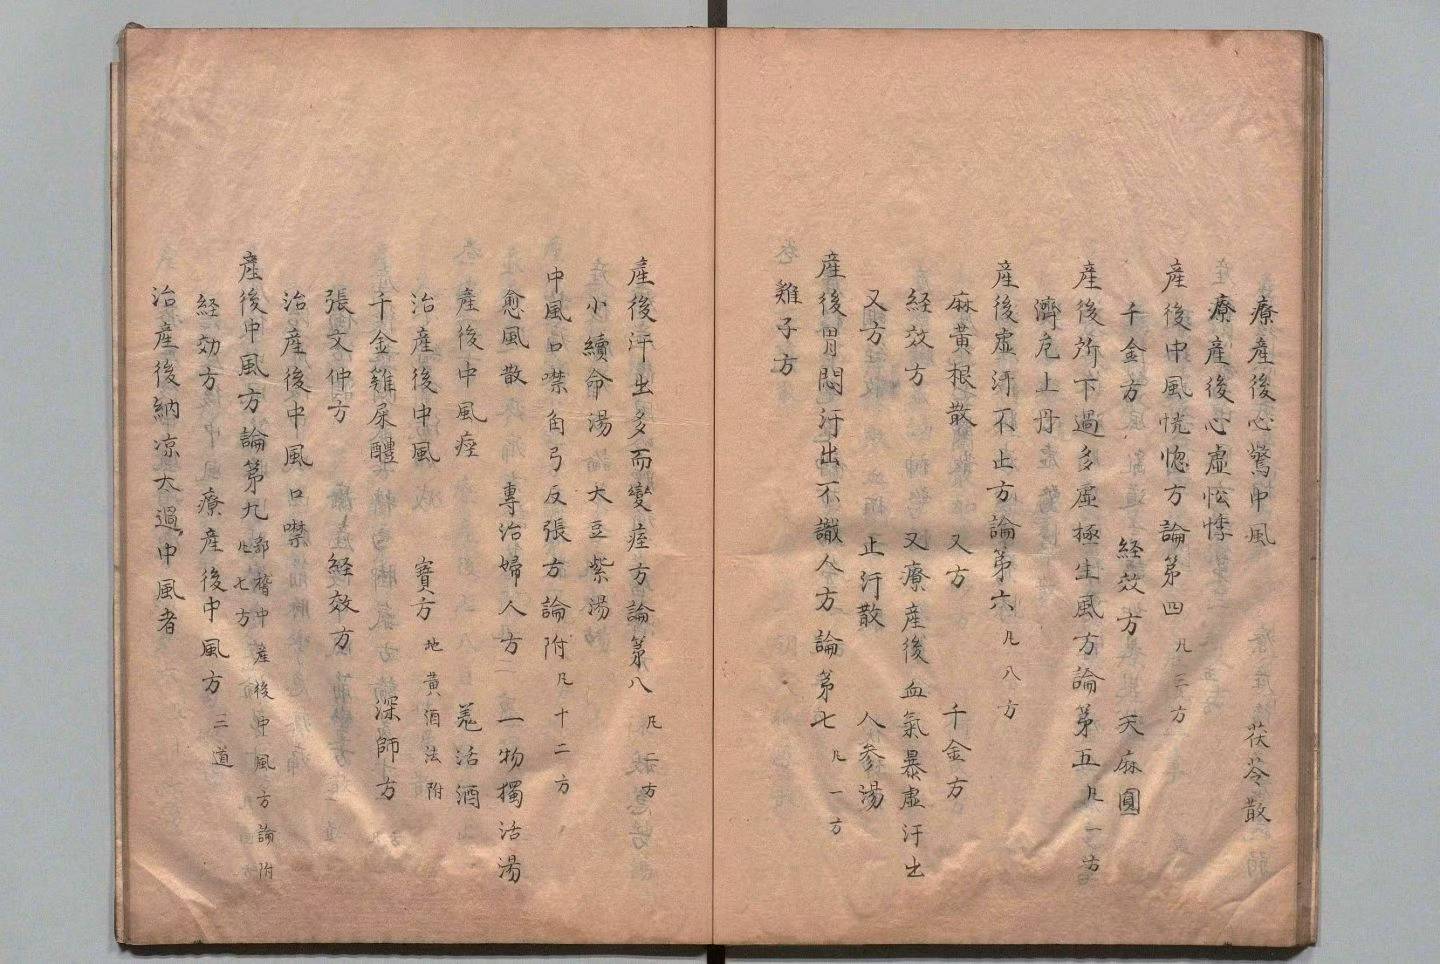 療産後心驚中風　茯苓散
療産後心虚忪悸
産後中風恍惚方論第四 凡三方
千金方　経效方　天麻圓
産後所下過多虚極生風方論第五 凡一方
濟危上丹
産後虚汗不止方論第六 凡八方
麻黄根散　又方　千金方
経效方　又療産後血氣暴虚汗出
又方　止汗散　人参湯
産後胃悶汗出不識人方論第七 凡一方
雞子方
産後汗出多而變痓方論第八 凡二方
小續命湯　大豆紫湯
中風口噤角弓反張方論附 凡十二方
愈風散　專治婦人方　一物獨活湯
産後中風痓　羗活酒
治産後中風　寶方 地黄酒法附
千金雞屎醴　深師方
張文仲方　経效方
治産後中風口噤
産後中風方論第九 郭稽中産後中風方論附 凡七方
経効方　療産後中風方 三道
治産後納凉太過中風者